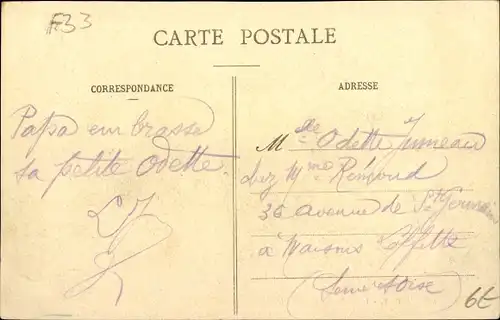 F33
CARTE POSTALE
CORRESPONDANCE
ADRESSE
Papa embrasse
sa petite Odette.
Melle Odette Jumeau
chez Mme Rémond
36 avenue de St Germain
à Maisons Laffitte
(Seine et Oise)
6€